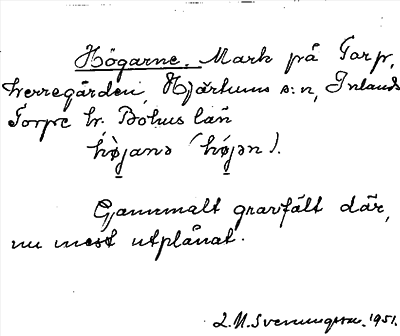 Högarne. Mark på Torp,
Nerregården, Hjärtums s:n, Inlands
Torpe hr. Bohus län
hø̀janə (hǿjən).
Gammalt gravfält där,
nu mest utplånat.
L.M. Svenungsson. 1951.